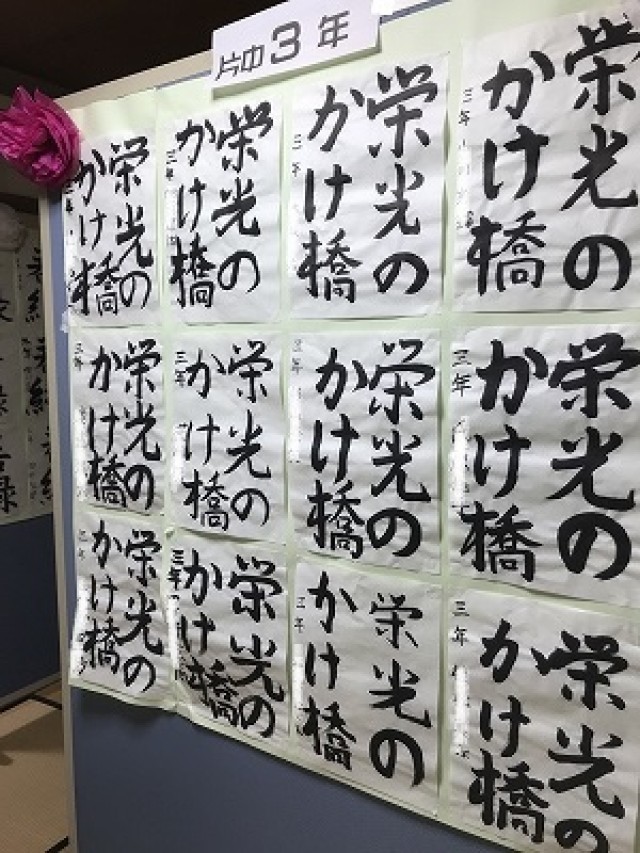 片中3年
栄光の
かけ橋
三年
栄光の
かけ橋
三年
栄光の
かけ橋
三年
栄光の
かけ橋
三年
栄光の
かけ橋
三年
栄光の
かけ橋
三年
栄光の
かけ橋
三年
栄光の
かけ橋
三年
栄光の
かけ橋
三年
栄光の
かけ橋
三年
栄光の
かけ橋
三年
栄光の
かけ橋
三年